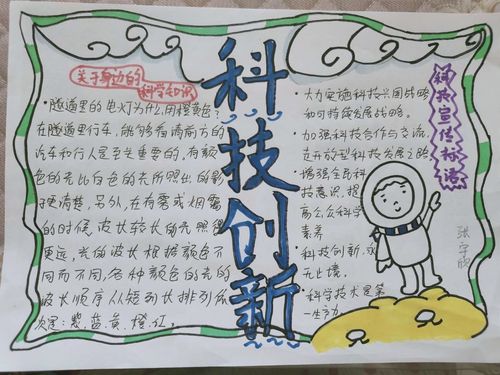 关于身边的
科学知识
科技创新
科技宣传标语
·隧道里的电灯为什么用橙黄色?
在隧道里行车,能够看清前方的
汽车和行人是至关重要的,有颜
色的光比白色的光所照出的影
更清楚。另外,在有雾或烟雾
的时候,波长较长的光照得
更远,光的波长根据颜色不
同而不同,各种颜色的光的
波长顺序从短到长排列依
次是:紫、蓝、黄、橙、红。
·大力实施科技兴国战略
和可持续发展战略。
·加强科技合作与交流,
走开放型科技发展之路
·增强全民科
技意识,提
高公众科学
素养
·科技创新,永
无止境。
·科学技术是第
一生产力
张宇